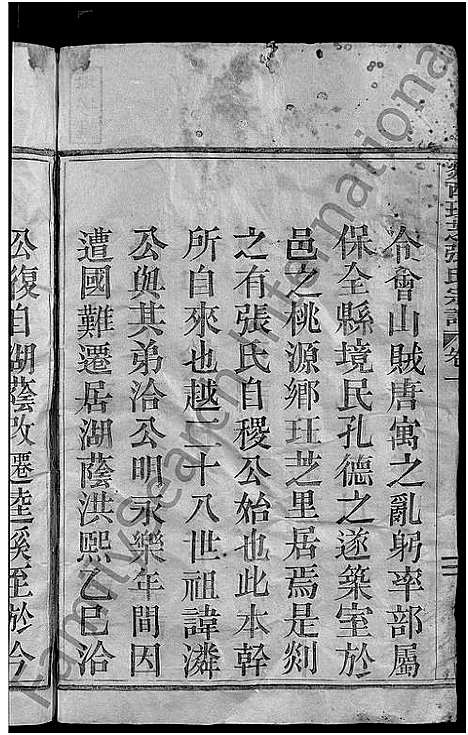 令會山賊唐寓之亂躬率部屬
保全縣境民孔德之遂築室於
邑之桃源鄉玨芝里居焉是剡
之有張氏自稷公始也此本幹
所自來也越二十八世祖諱潾
公與其弟洽公明永樂年間因
遭國難遷居湖蔭洪熙乙巳洽
公復自湖蔭改遷逵溪至於今
張氏宗譜
卷一
FamilySearch International